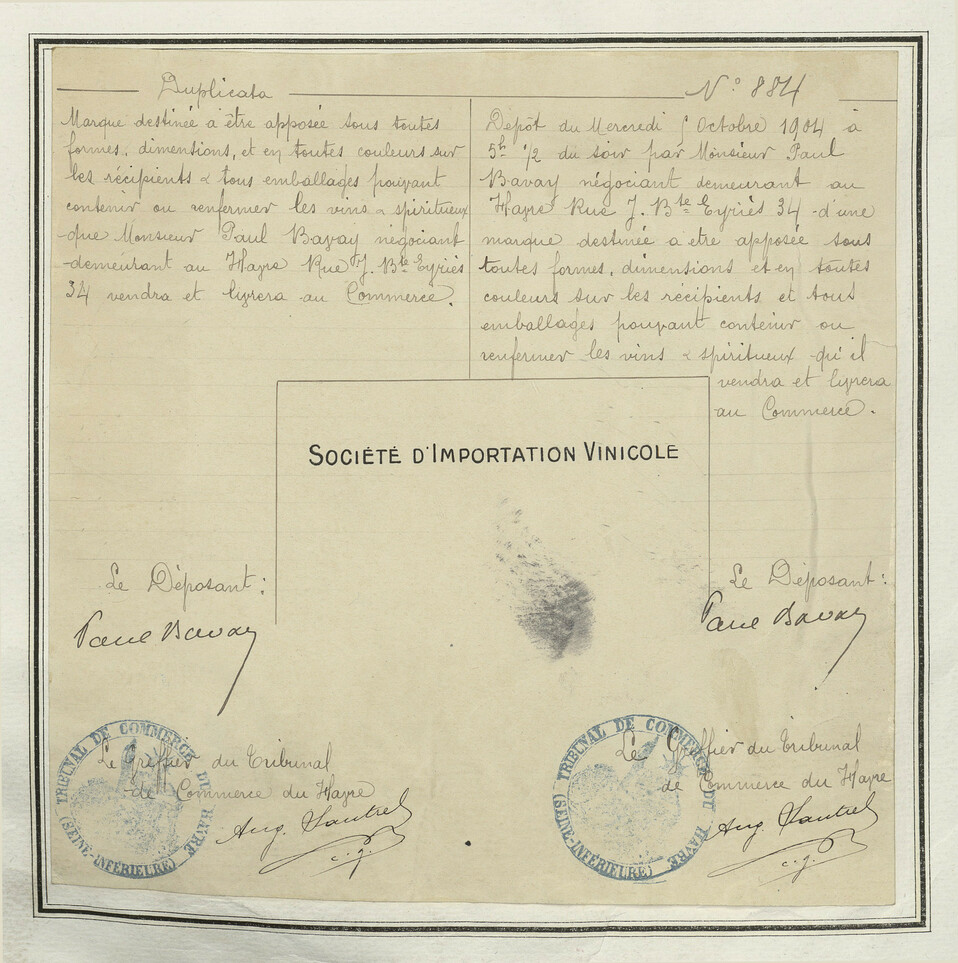 Duplicata
N° 884
Marque destinée à être apposée sous toutes
formes, dimensions, et en toutes couleurs sur
les récipients & tous emballages pouvant
contenir ou renfermer les vins & spiritueux
que Monsieur Paul Bavay négociant
demeurant au Havre Rue J. Bte Eyriès
34 vendra et livrera au Commerce.
Dépôt du Mercredi 5 Octobre 1904 à
5h 1/2 du soir par Monsieur Paul
Bavay négociant demeurant au
Havre Rue J. Bte Eyriès 34 d'une
marque destinée a etre apposée sous
toutes formes, dimensions et en toutes
couleurs sur les récipients et tous
emballages pouvant contenir ou
renfermer les vins & spiritueux qu'il
vendra et livrera
au Commerce.
SOCIÉTÉ D'IMPORTATION VINICOLE
Le Déposant:
Paul Bavay
Le Déposant:
Paul Bavay
TRIBUNAL DE COMMERCE DU HAVRE
(SEINE-INFÉRIEURE)
Le Greffier du Tribunal
de Commerce du Havre
Aug. Lautrel
c. g.
TRIBUNAL DE COMMERCE DU HAVRE
(SEINE-INFÉRIEURE)
Le Greffier du Tribunal
de Commerce du Havre
Aug. Lautrel
c. g.